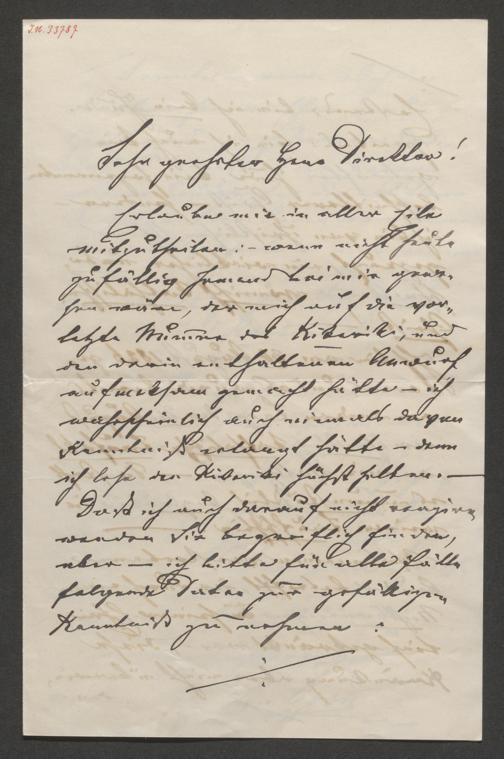 J.N. 33787
Sehr geehrter Herr Direktor!
Erlaube mir in aller Eile
mitzutheilen: – wenn nicht heute
zufällig Jemand bei mir gewe-
sen wäre, der mich auf die vor-
letzte Numme des Kikeriki, und
den darin enthaltenen Anwurf
aufmerksam gemacht hätte – ich
wahrscheinlich auch niemals davon
Kenntniß erlangt hätte – denn
ich lese den Kikeriki höchst selten. –
Daß ich auch darauf nicht reagire
werden Sie begreiflich finden,
aber – ich bitte für alle Fälle
folgende Daten zur gefälligen
Kenntniß zu nehmen: